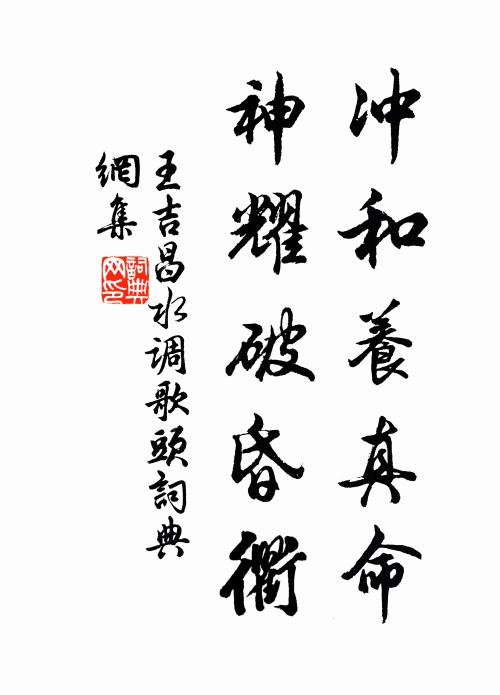 冲和養真命
神耀破昏衢
王吉昌水调歌頭詞典
網集
詞典网印